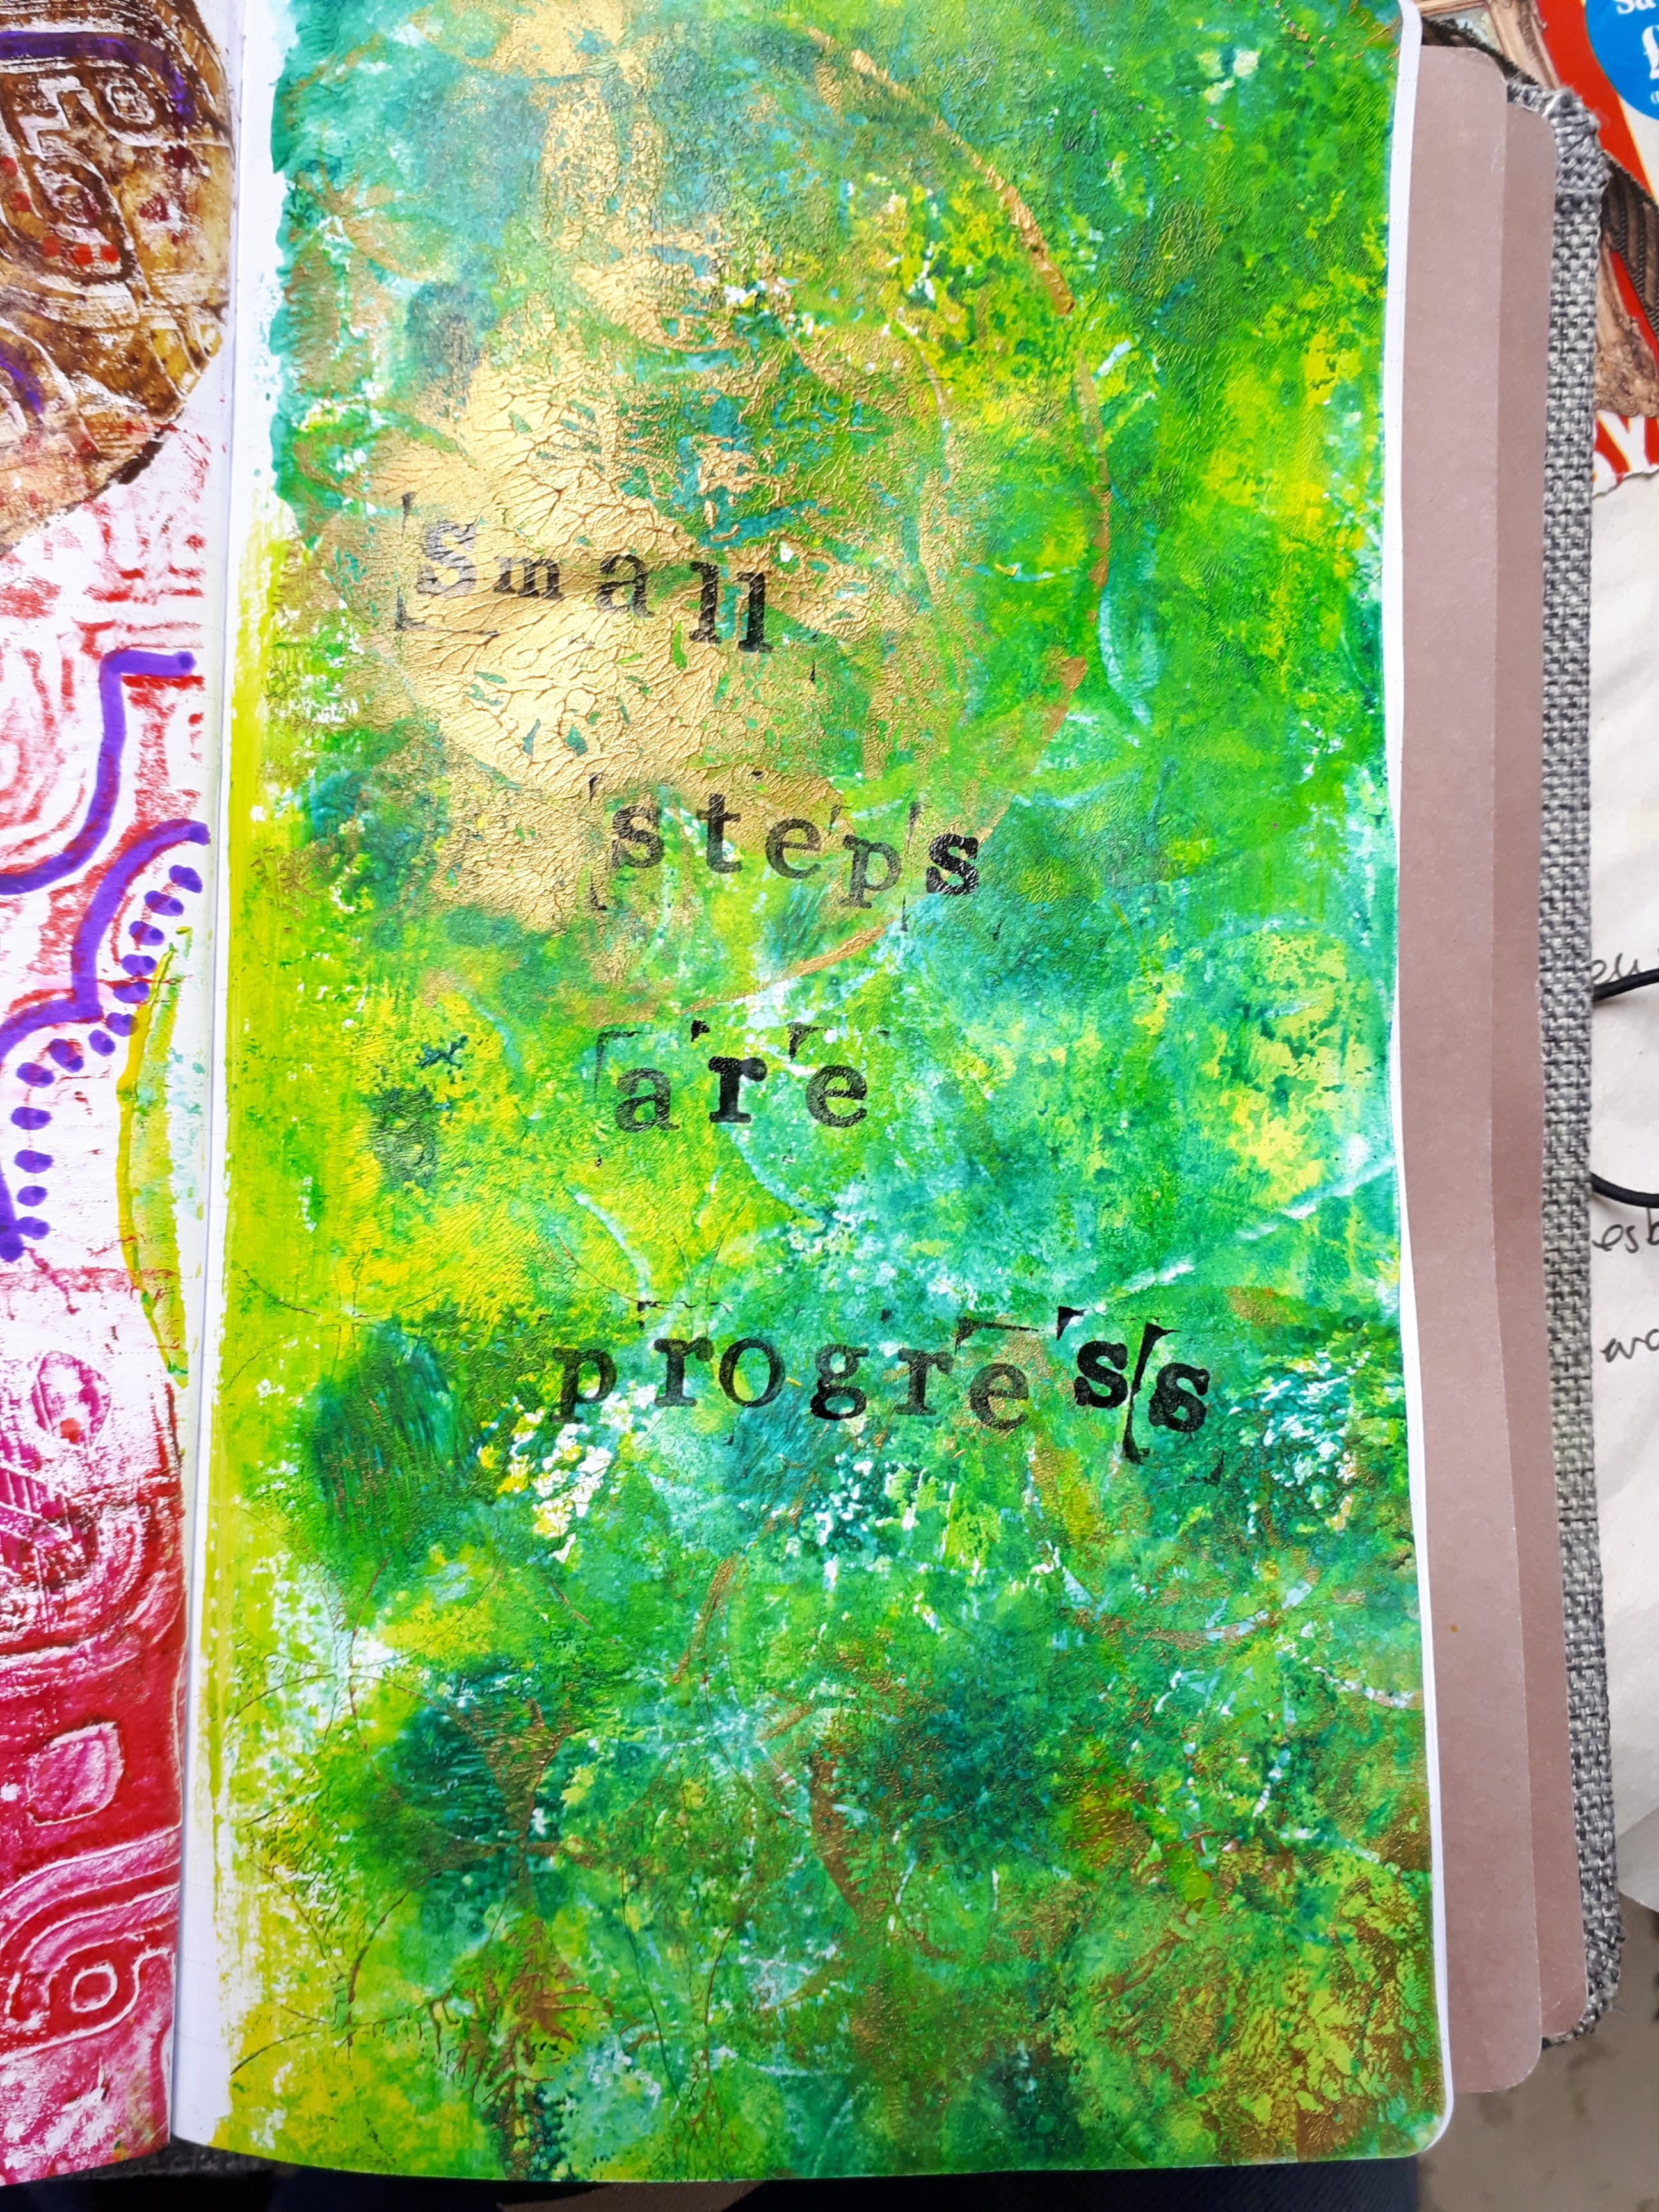 Small
steps
are
progress